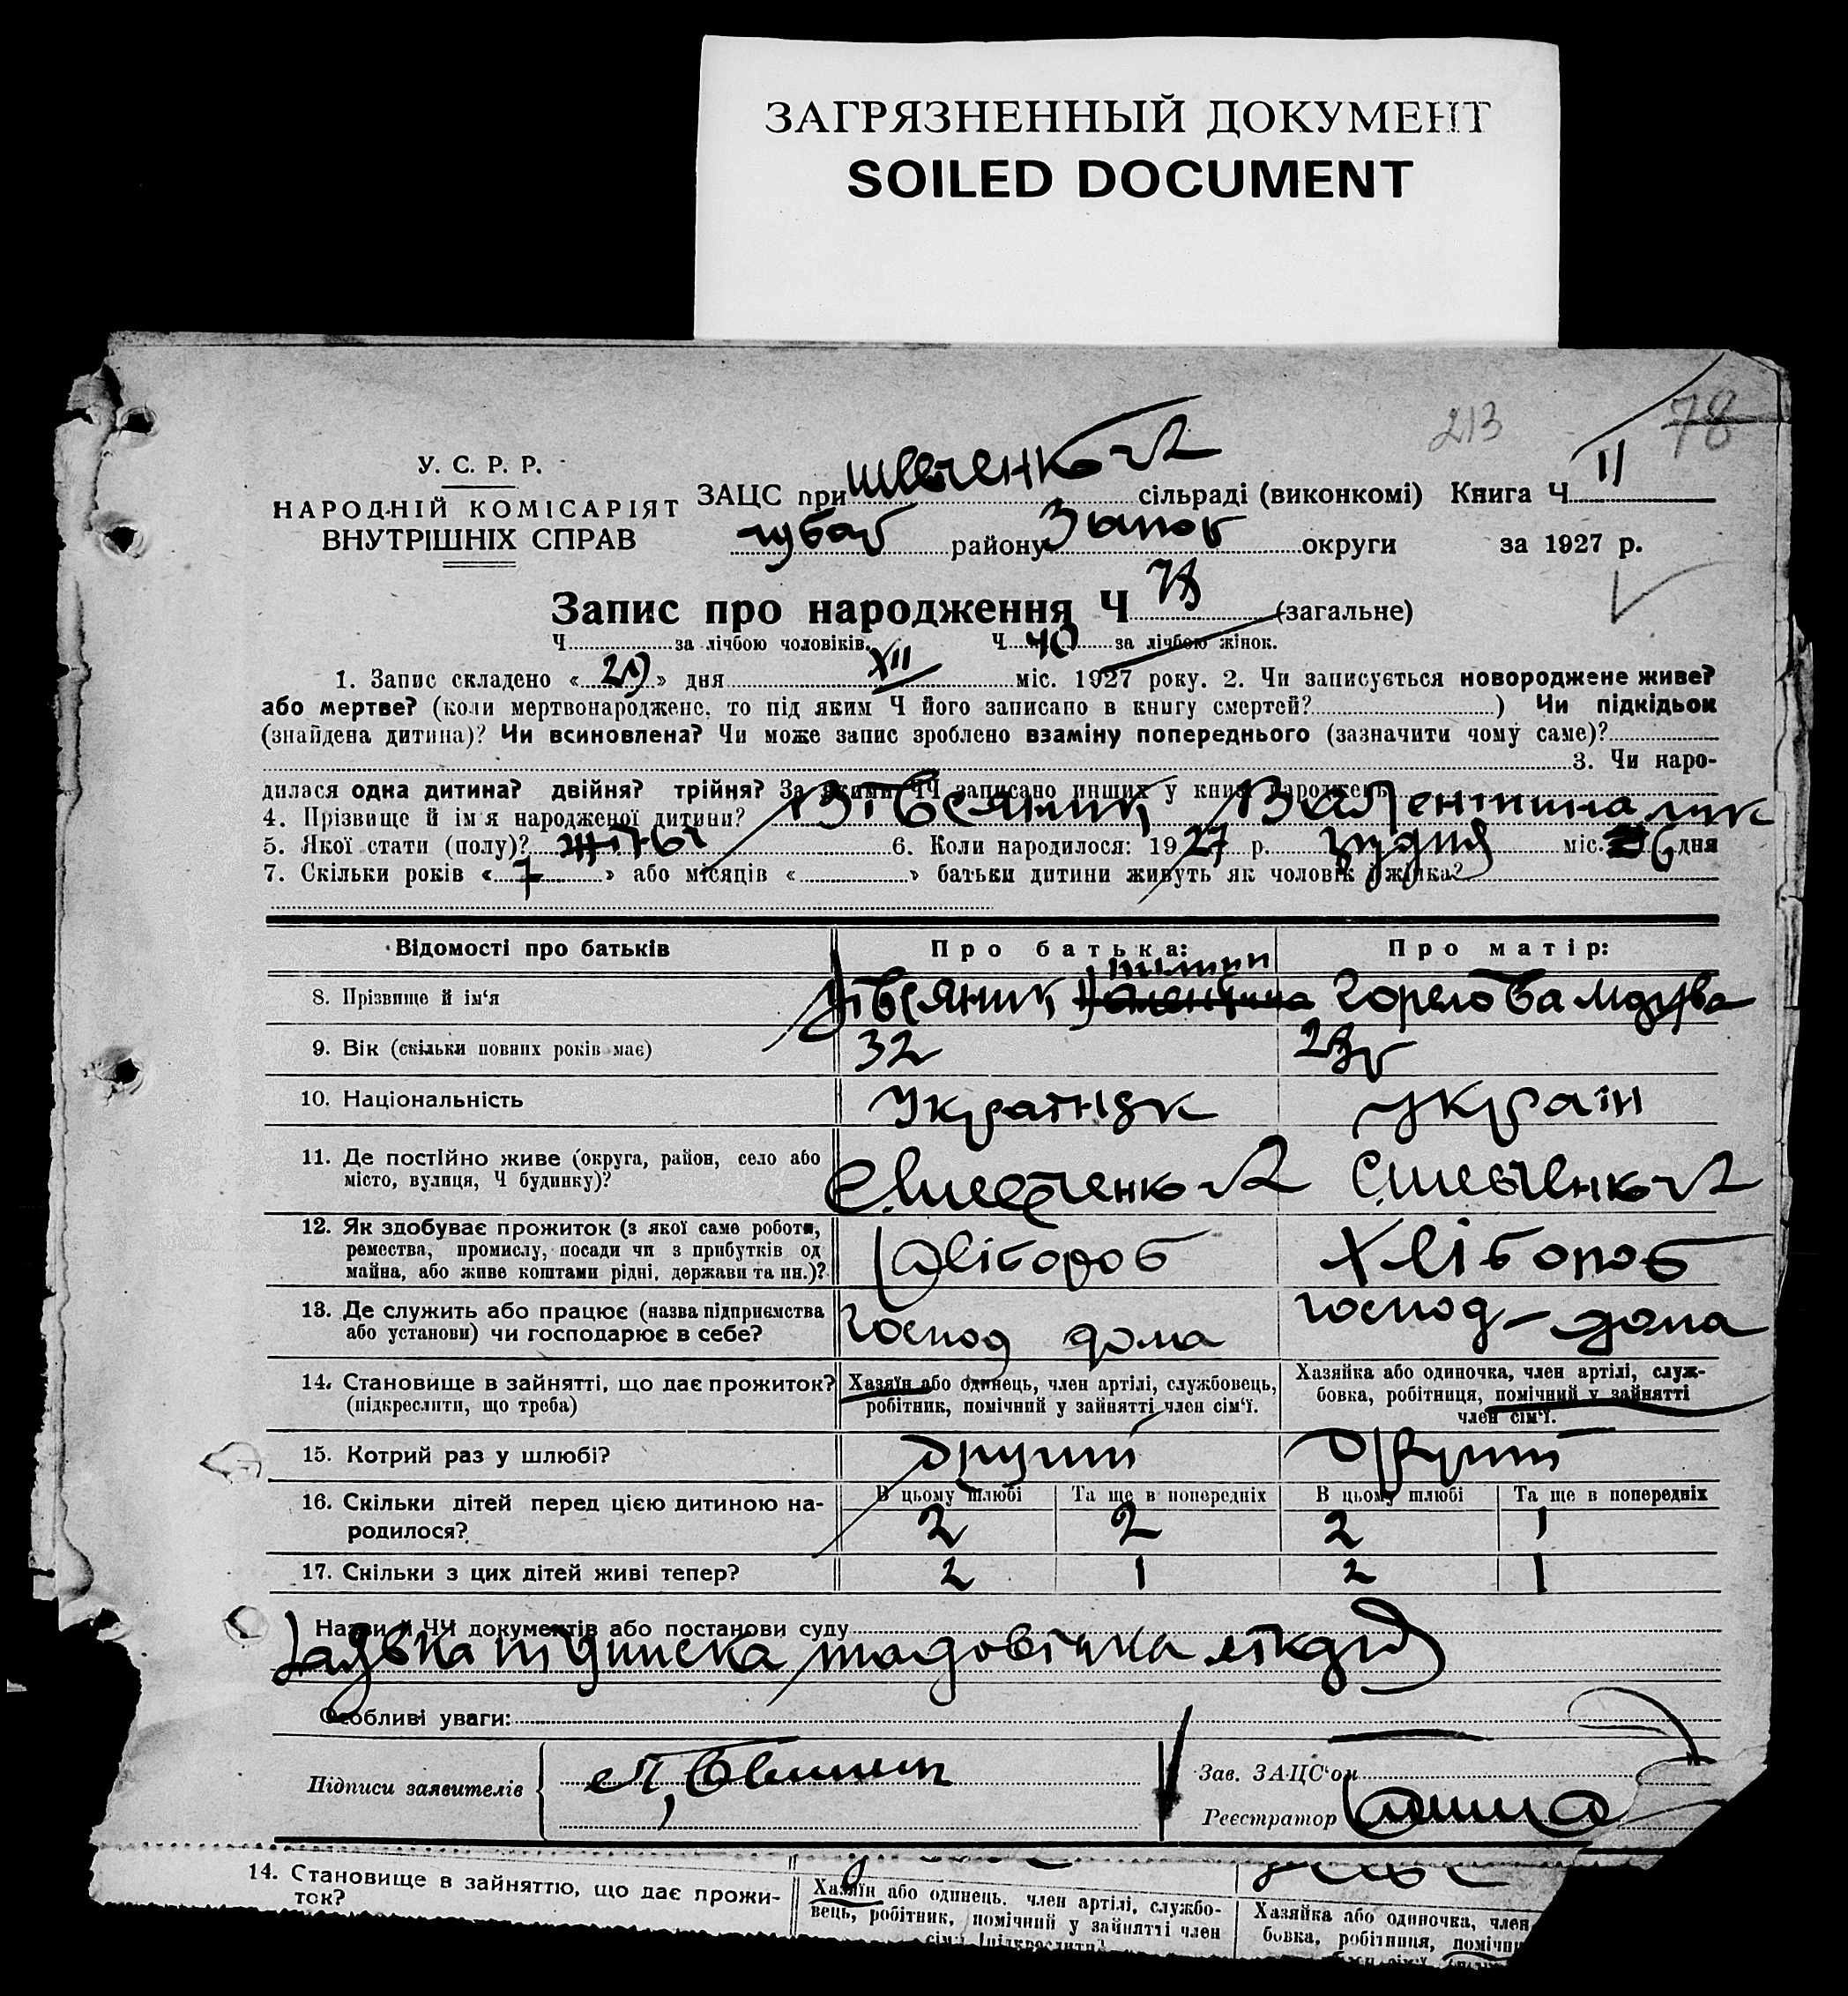 ЗАГРЯЗНЕННЫЙ ДОКУМЕНТ
SOILED DOCUMENT
213 78
У. С. Р. Р.
НАРОДНІЙ КОМІСАРІЯТ
ВНУТРІШНІХ СПРАВ
ЗАЦС при сільраді (виконкомі) Книга Ч. II
району Запоր округи за 1927 р.
Запис про народження Ч 78 (загальне)
Ч. за лічбою чоловіків. Ч. 40 за лічбою жінок.
1. Запис складено «29» дня XII міс. 1927 року. 2. Чи записується новороджене живе?
або мертве? (коли мертвонароджене, то під яким Ч його записано в книгу смертей? ) Чи підкідьок
(знайдена дитина)? Чи всиновлена? Чи може запис зроблено взаміну попереднього (зазначити чому саме)?
3. Чи наро-
дилася одна дитина? двійня? трійня? За якими ЧЧ записано инших у книзі народжень
4. Прізвище й ім'я народженої дитини?
5. Якої стати (полу)? 6. Коли народилося: 1927 р. грудня міс. 6 дня
7. Скільки років «7» або місяців « » батьки дитини живуть як чоловік і жінка?
Відомості про батьків Про батька: Про матір:
8. Прізвище й ім'я
9. Вік (скільки повних років має) 32
10. Національність Українець україн
11. Де постійно живе (округа, район, село або
місто, вулиця, Ч будинку)?
12. Як здобуває прожиток (з якої саме роботи,
ремества, промислу, посади чи з прибутків од
майна, або живе коштами рідні, держави та ин.)?
Хлібороб Хлібороб
13. Де служить або працює (назва підприємства
або установи) чи господарює в себе?
Господ дома господ – дома
14. Становище в зайнятті, що дає прожиток?
(підкреслити, що треба)
Хазяїн або одинець, член артілі, службовець,
робітник, помічний у зайнятті член сім'ї.
Хазяйка або одиночка, член артілі, служ-
бовка, робітниця, помічний у зайнятті
член сім'ї.
15. Котрий раз у шлюбі? другий другий
16. Скільки дітей перед цією дитиною на-
родилося?
В цьому шлюбі Та ще в попередніх В цьому шлюбі Та ще в попередніх
2 2 2 1
17. Скільки з цих дітей живі тепер? 2 1 2 1
Назви й ЧЧ документів або постанови суду
Особливі уваги:
Підписи заявителів
Зав. ЗАЦС'ом
Реєстратор
14. Становище в зайняттю, що дає прожи-
ток?
Хазяїн або одинець, член артілі, службо-
вець, робітник, помічний у зайнятті член
Хазяйка або одиночка, член
бовка, робітниця, помічни